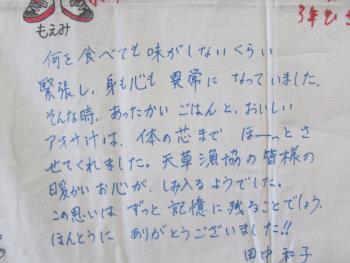 もえみ
3年ひさ
何を食べても味がしないくらい
緊張し、身も心も異常になっていました。
そんな時、あったかいごはんと、おいしい
アオサ汁は、体の芯まで ほーっとさ
せてくれました。天草漁協の皆様の
暖かいお心が、しみ入るようでした。
この思いは ずっと記憶に残ることでしょう。
ほんとうに ありがとうございました!!
田中和子